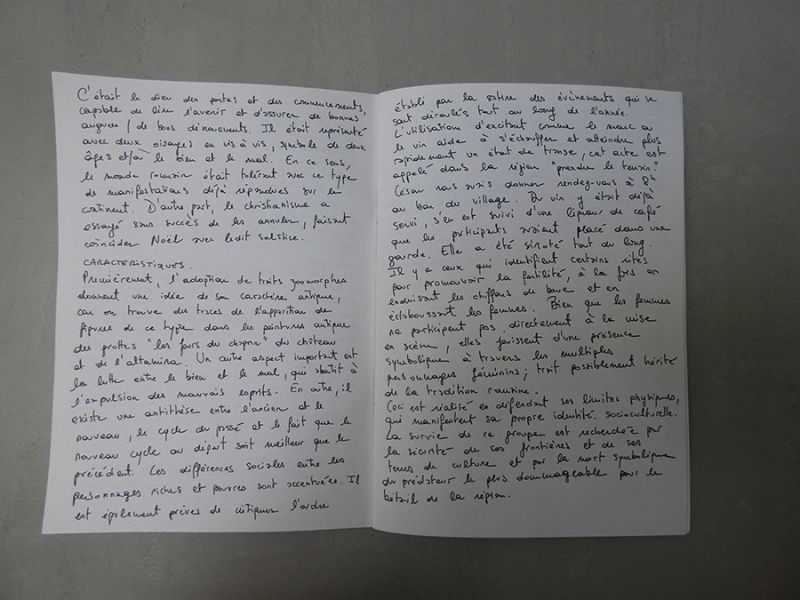 C'était le dieu des portes et des commencements,
capable de lire l'avenir et d'assurer de bonnes
augures / de bons dénouements. Il était représenté
avec deux visages en vis à vis, symbole de deux
âges et/à le bien et le mal. En ce sens,
le monde romain était tolérant avec ce type
de manifestations déjà répandues sur le
continent. D'autre part, le christianisme a
essayé sans succès de les annuler, faisant
coïncider Noël avec ledit solstice.
CARACTERISTIQUES.
Premièrement, l'adoption de traits zoomorphes
donnent une idée de son caractère antique,
car on trouve des traces de l'apparition de
figures de ce type dans les peintures antiques
des grottes "les fours du" du château
et de l'altamira. Un autre aspect important est
la lutte entre le bien et le mal, qui aboutit à
l'expulsion des mauvais esprits. En outre, il
existe une antithèse entre l'ancien et le
nouveau, le cycle du passé et le fait que le
nouveau cycle au départ soit meilleur que le
précédent. Les différences sociales entre les
personnages riches et pauvres sont accentuées. Il
est également prévu de critiquer l'ordre
établi par la satire des évènements qui se
sont déroulés tout au long de l'année.
L'utilisation d'excitant comme le marc ou
le vin aide à s'échauffer et atteindre plus
rapidement un état de transe, cet acte est
appelé dans la région "prendre le".
César nous avais donner rendez-vous à 8h
au bar du village. Du vin y était déjà
servi, s'en est suivi d'une liqueur de café
que les participants avaient placé dans une
gourde. Elle a été siroté tout du long.
Il y a ceux qui identifient certains rites
pour promouvoir la fertilité, à la fois en
enduisant les chiffons de boue et en
éclaboussant les femmes. Bien que les femmes
ne participent pas directement à la mise
en scène, elles jouissent d'une présence
symbolique à travers les multiples
personnages féminins ; trait possiblement hérité
de la tradition romaine.
Ceci est réalisé en défendant ses limites physiques,
qui manifestent sa propre identité socioculturelle.
La survie de ce groupe est recherchée par
la sécurité de ses frontières et de ses
terres de culture et par la mort symbolique
du prédateur le plus dommageable pour le
bétail de la région.